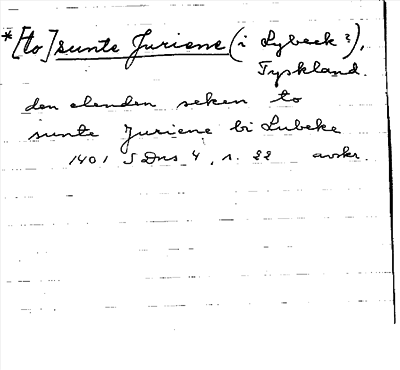 *[to] sunte Juriene (i Lybeck?),
Tyskland.
den elenden seken to
sunte Juriene bi Lubeke
1401 SDns 4, n. 22 avskr.